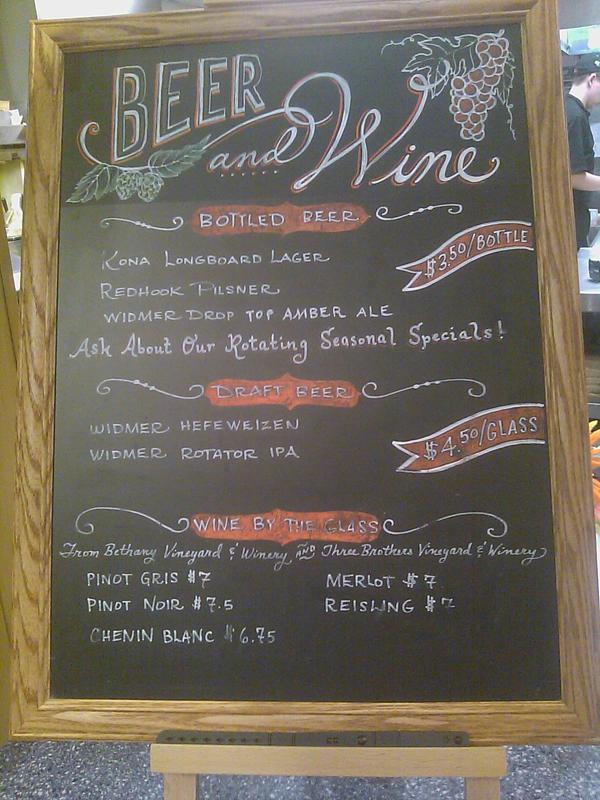 BEER
and Wine
BOTTLED BEER
KONA LONGBOARD LAGER
$3.50/BOTTLE
REDHOOK PILSNER
WIDMER DROP TOP AMBER ALE
Ask About Our Rotating Seasonal Specials!
DRAFT BEER
WIDMER HEFEWEIZEN
$4.50/GLASS
WIDMER ROTATOR IPA
WINE BY THE GLASS
From Bethany Vineyard & Winery AND Three Brothers Vineyard & Winery
PINOT GRIS $7 MERLOT $7
PINOT NOIR $7.5 REISLING $7
CHENIN BLANC $6.75